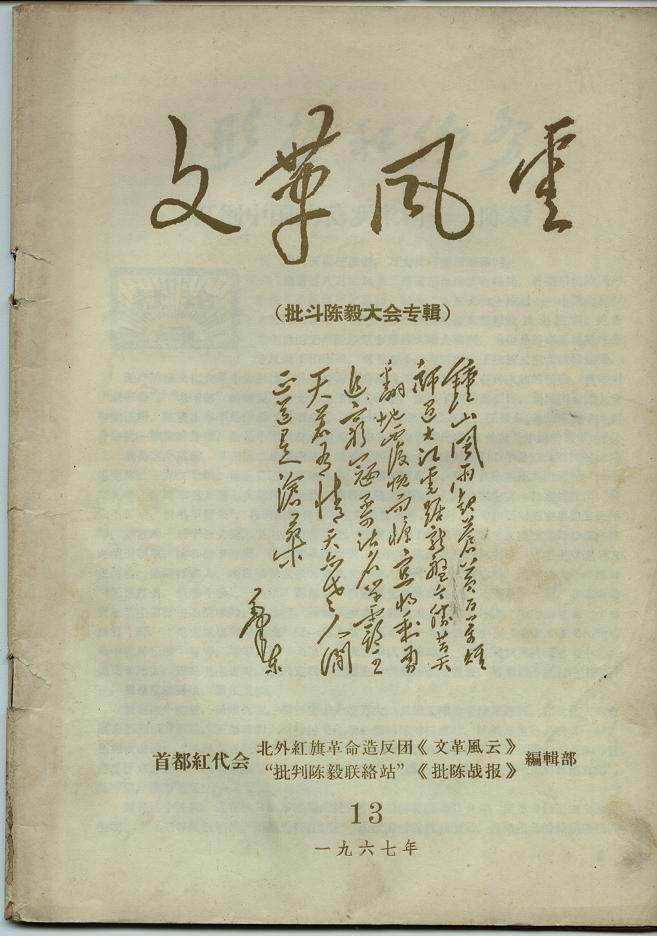 文革风雲
（批斗陈毅大会专輯）
鍾山風雨起蒼黃百萬雄
師過大江虎踞龍盤今勝昔天
翻地覆慨而慷宜將剩勇
追窮寇不可沽名學霸王
天若有情天亦老人間
正道是滄桑
毛澤東
首都紅代会 北外紅旗革命造反团《文革風云》 編輯部
“批判陈毅联絡站”《批陈战报》
13
一九六七年